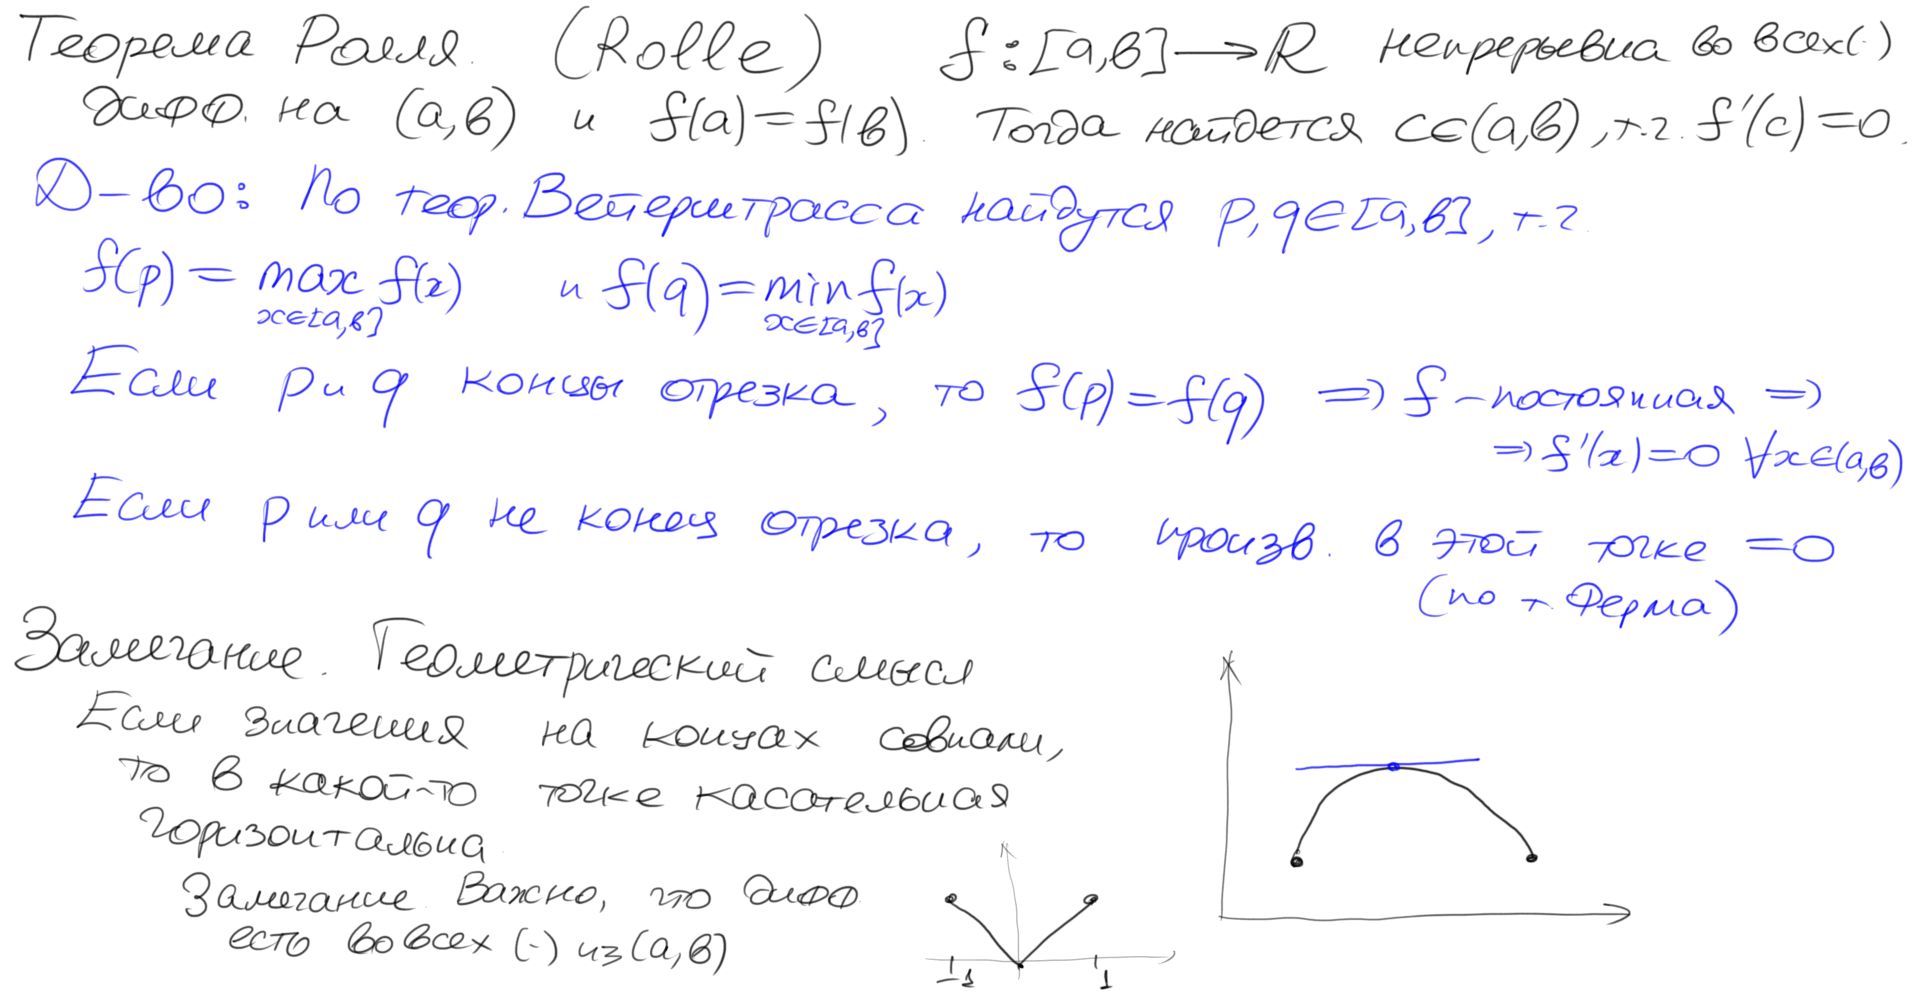 Теорема Ролля. (Rolle) f:[a,b]⟶R непрерывна во всех (·)
дифф. на (a,b) и f(a)=f(b). Тогда найдется c∈(a,b), т.ч. f'(c)=0.
Д-во: По теор. Вейерштрасса найдутся p,q∈[a,b], т.ч.
f(p) = max f(x) и f(q) = min f(x)
x∈[a,b] x∈[a,b]
Если p и q концы отрезка, то f(p)=f(q) ⇒ f – постоянная ⇒
⇒ f'(x)=0 ∀x∈(a,b)
Если p или q не конец отрезка, то произв. в этой точке =0
(по т. Ферма)
Замечание. Геометрический смысл
Если значения на концах совпали,
то в какой-то точке касательная
горизонтальна
Замечание Важно, что дифф
есть во всех (·) из (a,b)
-1 1